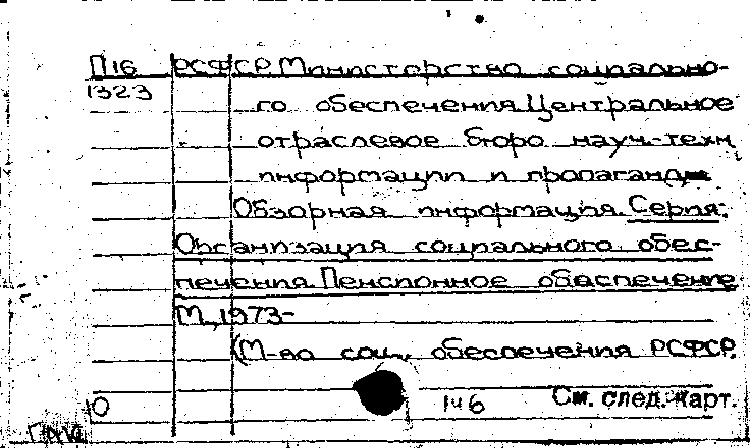 П16 РСФСР. Министерство социально-
1323 го обеспечения. Центральное
отраслевое бюро науч.-техн.
информации и пропаганды
Обзорная информация. Серия:
Организация социального обес-
печения. Пенсионное обеспечение.
М., 1973-
(М-во соц. обеспечения РСФСР.
10 146 См. след. карт.